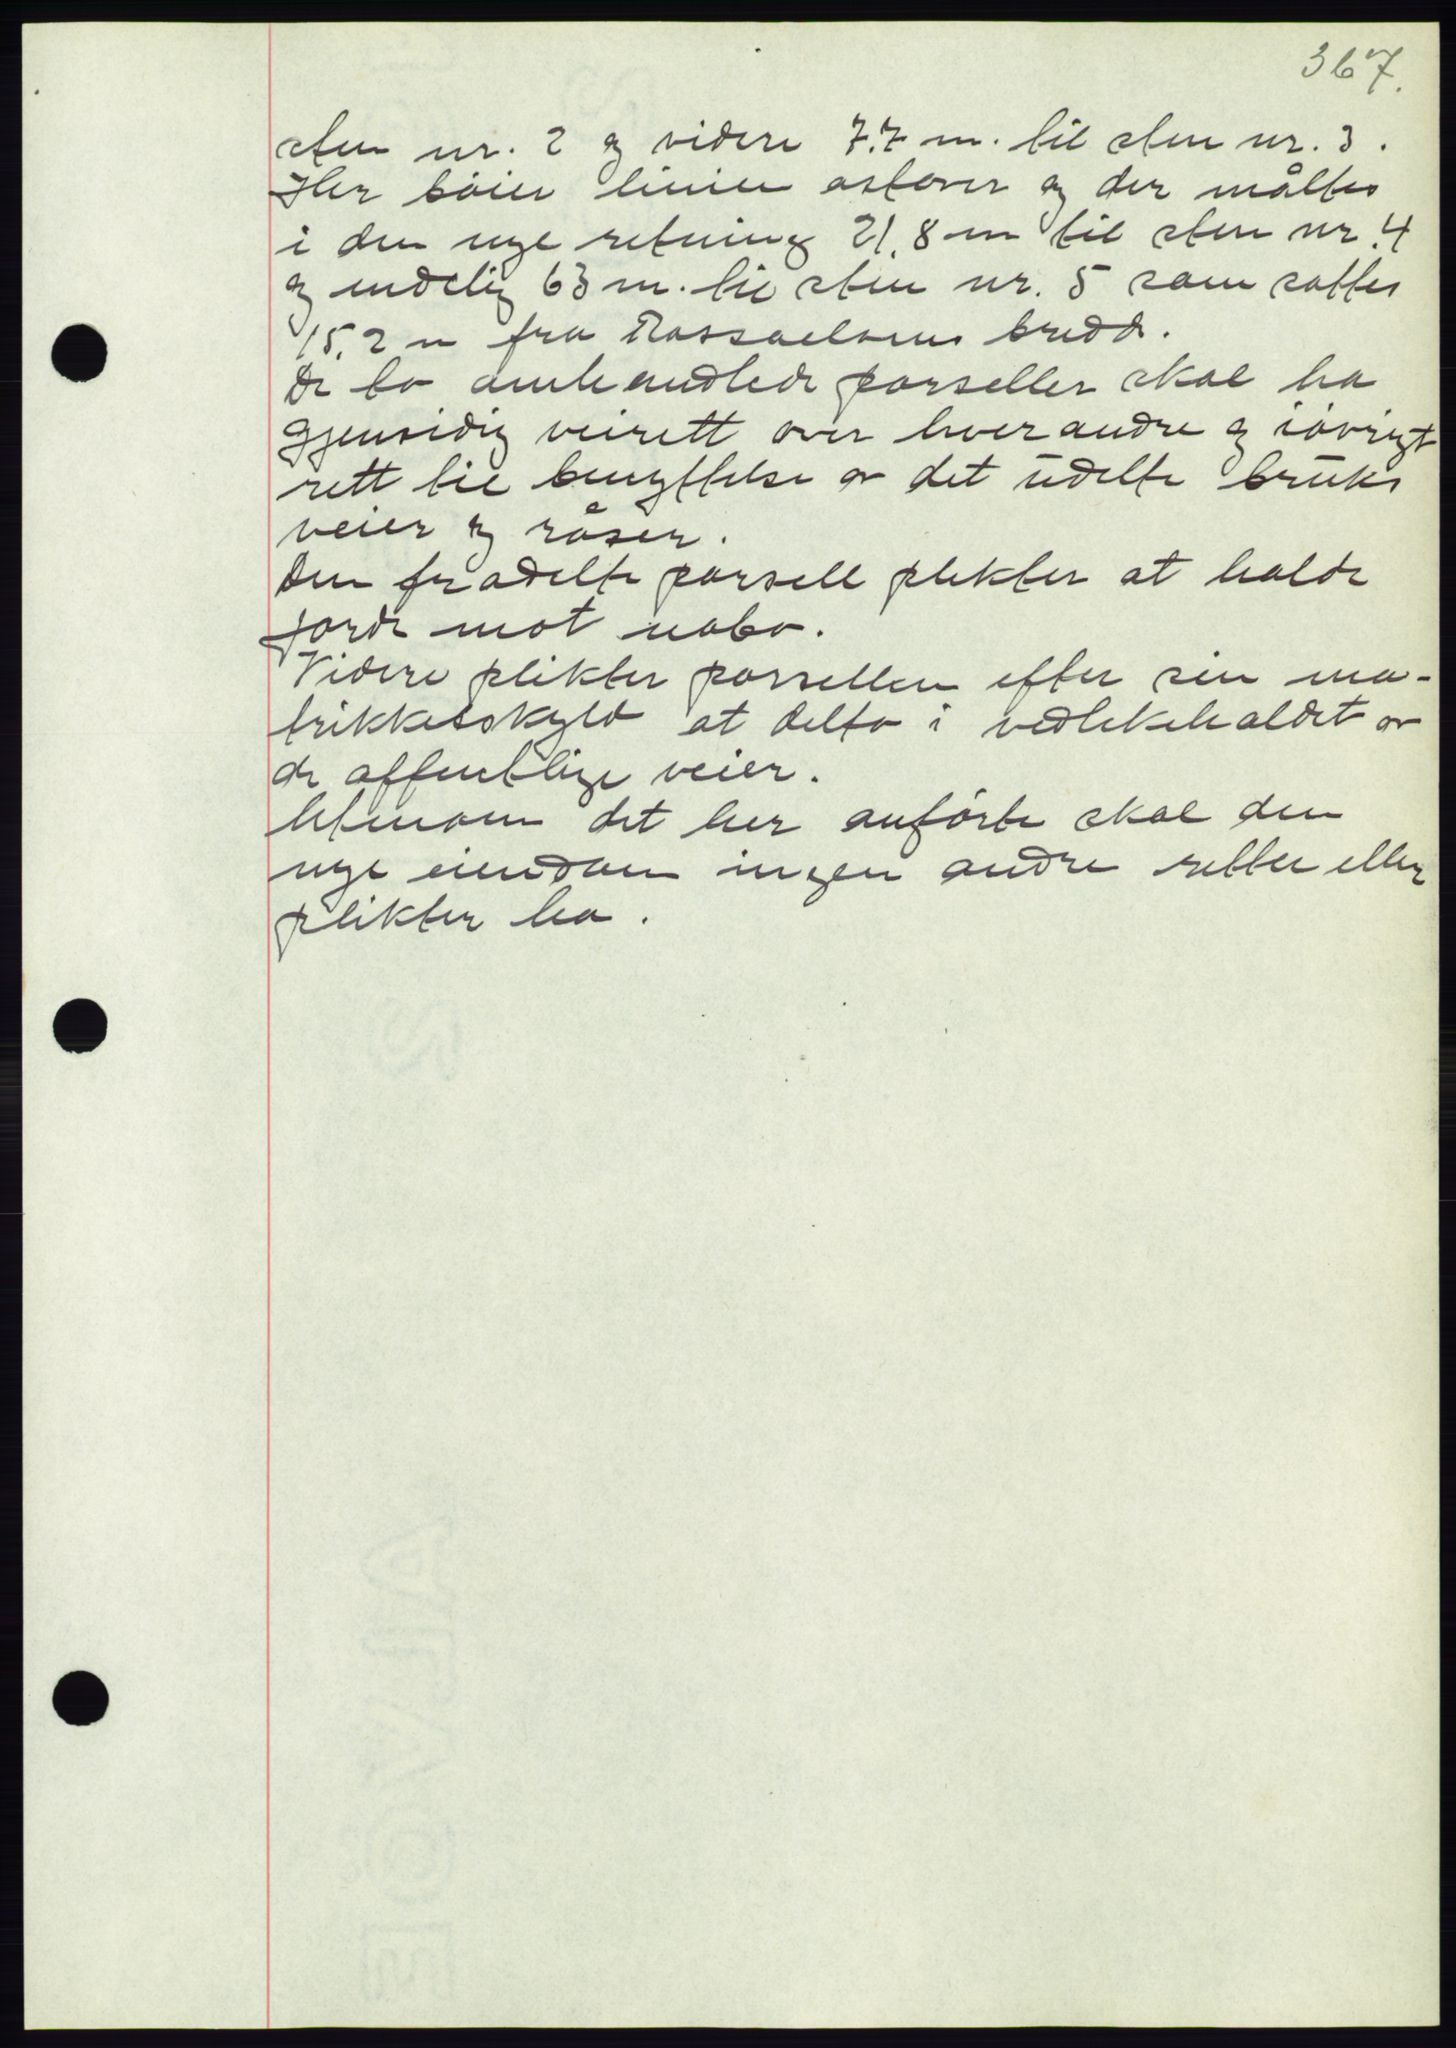 367.
sten nr. 2 og videre 7.7 m. til sten nr. 3.
Her bøier linien østover og der måltes
i den nye retning 21,8 m til sten nr. 4
og endelig 63 m. til sten nr. 5 som sattes
15,2 m fra bredd.
De to omhandlede parseller skal ha
gjensidig veirett over hverandre og iøvrigt
rett til benyttelse av det udelte bruks
veier og råser.
Den fradelte parsell plikter at holde
jorde mot nabo.
Videre plikter parsellen efter sin ma-
trikkelskyld at delta i vedlikeholdet av
de offentlige veier.
Utenom det her anførte skal den
nye eiendom ingen andre retter eller
plikter ha.